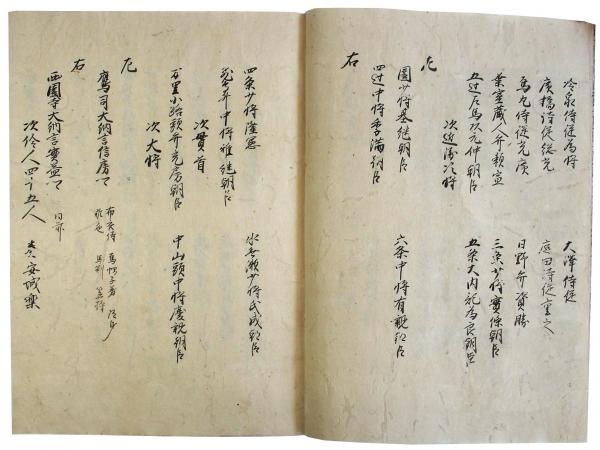 冷泉侍従為将　大澤侍従
廣橋侍従総光　庭田侍従重定
烏丸侍従光廣　日野弁資勝
葉室蔵人弁頼宣　三条少将實條朝臣
五辻左馬次元仲朝臣　五条大内記為良朝臣
次近衛次将
左
園少将基継朝臣　六条中将有親朝臣
四辻中将季満朝臣
右
四条少将隆憲　水無瀬少将氏成朝臣
飛鳥井中将雅継朝臣
次貫首
万里小路頭弁充房朝臣　中山頭中将慶親朝臣
次大将
左
鷹司大納言信房　布衣侍　烏帽子着
右
西園寺大納言實益　同前
次伶人四十五人　奏安城樂